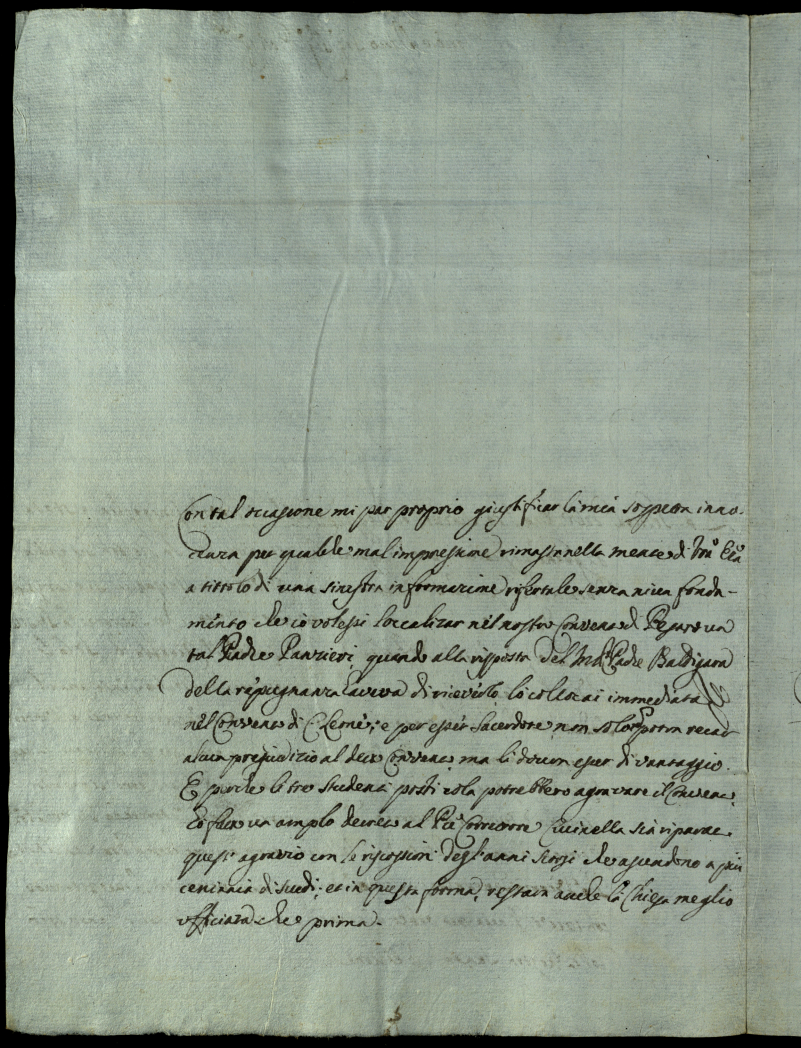 Con tal occasione mi par proprio giustificar la mia sospetta inno-
cenza per qualche mal'impressione rimasta nella mente di
a tittolo di una sinistra informazione senza niun fonda-
mento che io volessi localizar nel nostro Convento di Pesaro un
tal Padre Panzieri, quando alla risposta del Padre Baldigara
della repugnanza haveva di riceverlo, lo collocai immediata
nel Convento di e per esser Sacerdote, non solo potrà recar
alcun prejudizio al Convento, ma li dovrà esser di vantaggio.
E perche li tre Studenti posti colà potrebbero agravare il Convento,
Si fece un amplo decreto al Correttore sia riparare
questo agravio con le riscossioni degl'anni scorsi che ascendono a più
centinaia di scudi; et in questa forma, restarà anche la Chiesa meglio
officiata che prima.